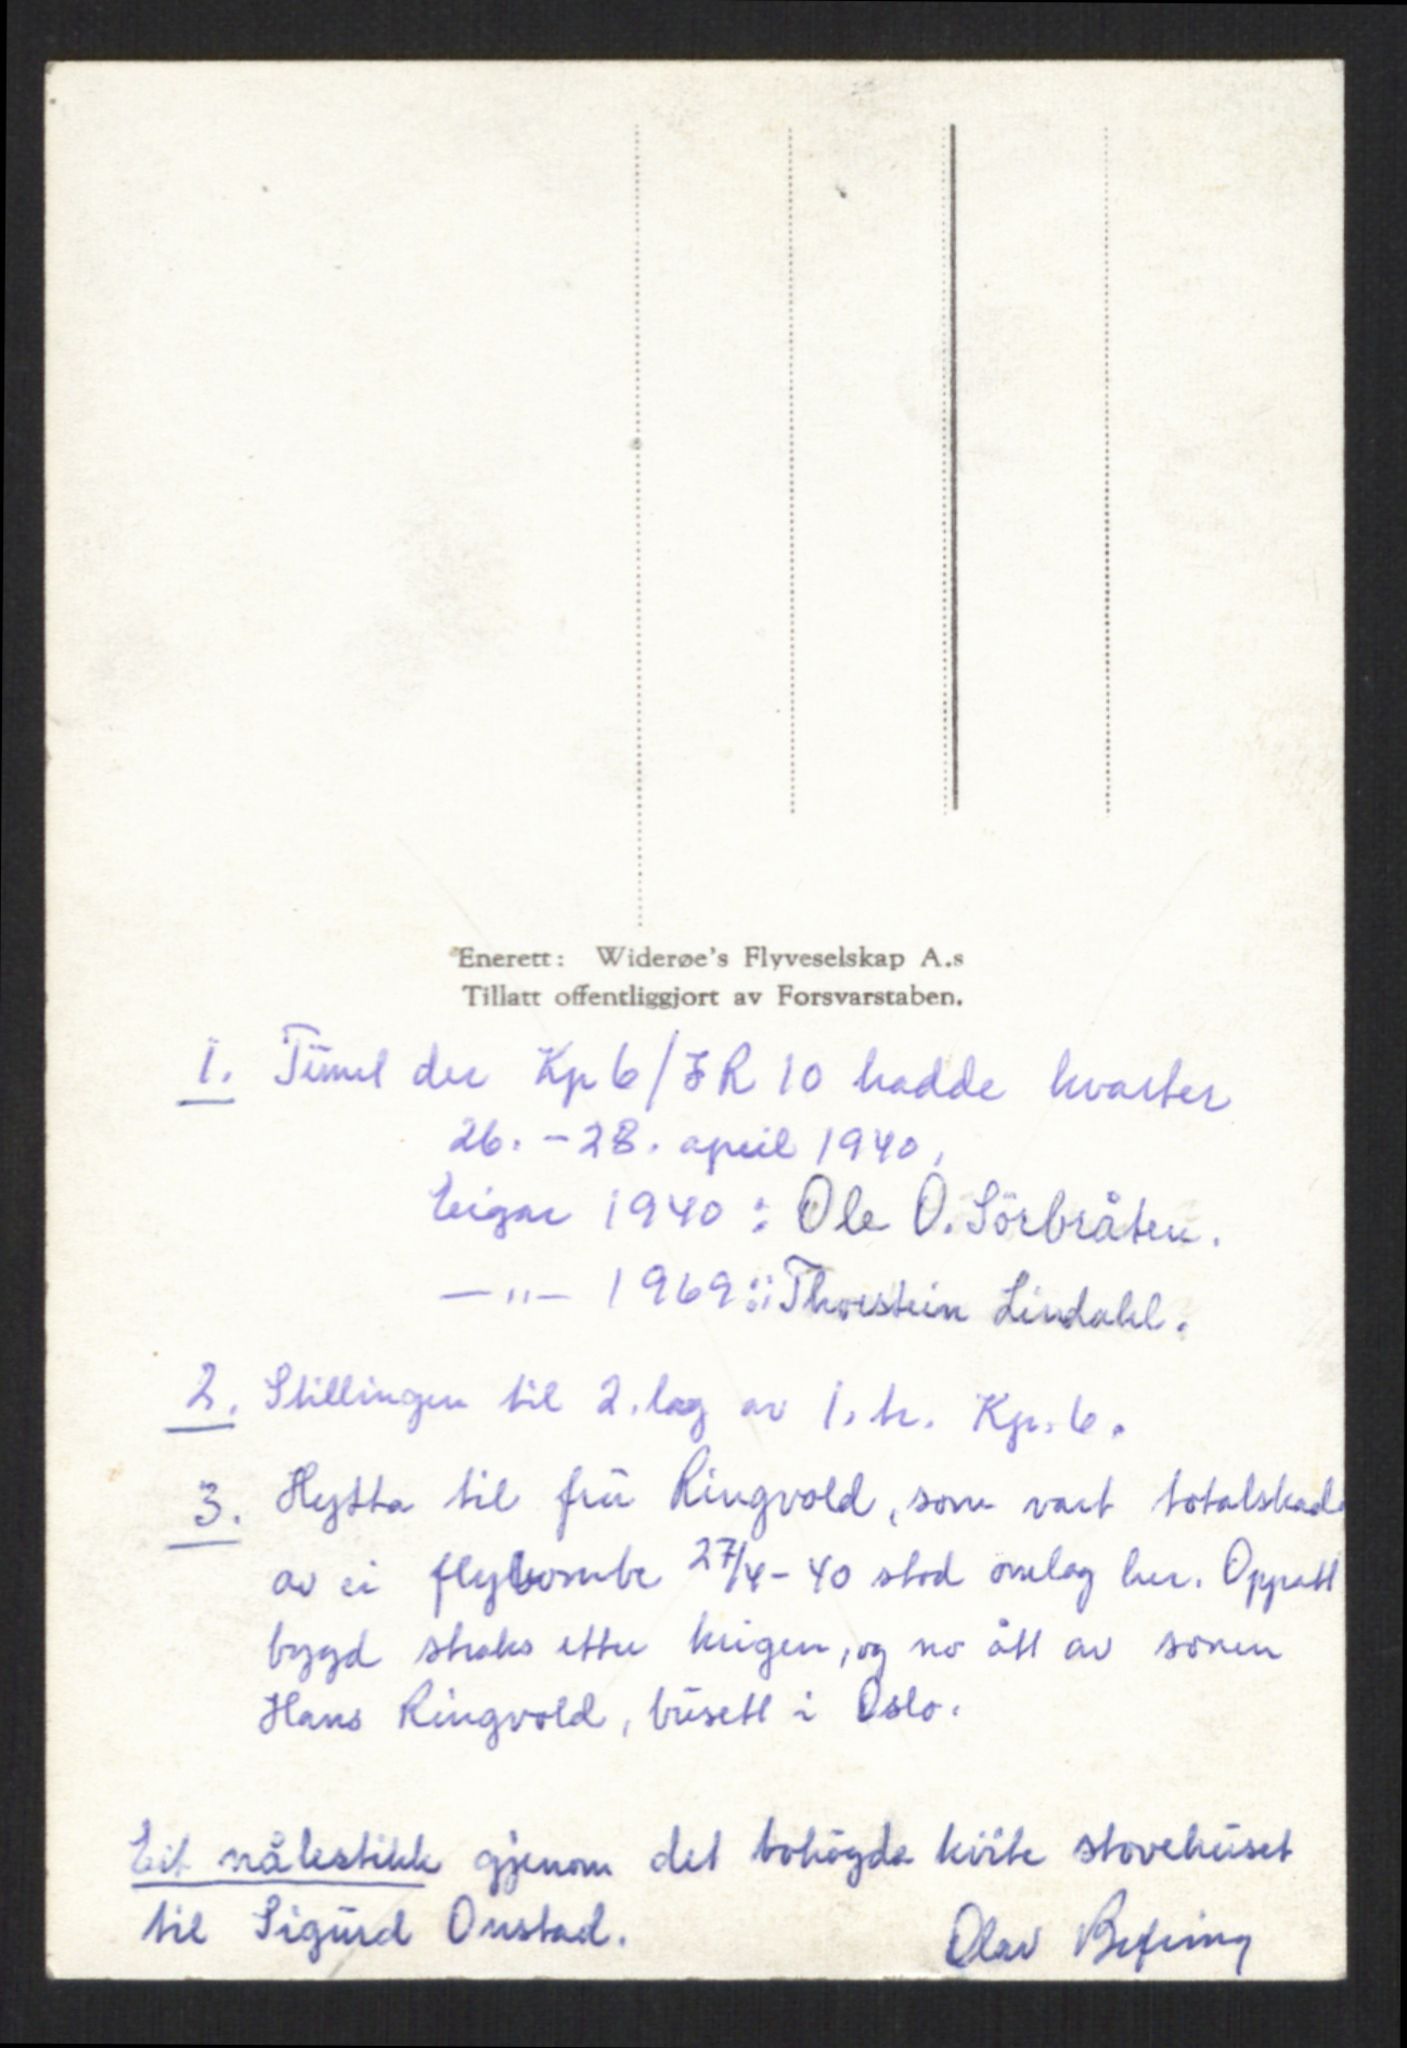 Enerett: Widerøe's Flyveselskap A.s
Tillatt offentliggjort av Forsvarstaben.
1. Tunet der Kp 6/IR 10 hadde kvarter
26. - 28. april 1940.
Eigar 1940 : Ole O. Sörbråten.
— " — 1969 : Thorstein Lindahl.
2. Stillingen til 2. lag av 1. tr. Kp. 6.
3. Hytta til fru Ringvold, som vart totalskad
av ei flybombe 27/4 - 40 stod omlag her. Oppatt
bygd straks etter krigen, og no ått av sonen
Hans Ringvold, busett i Oslo.
Eit nålestikk gjenom det tohögda kvite stovehuset
til Sigurd Onstad.
Olav